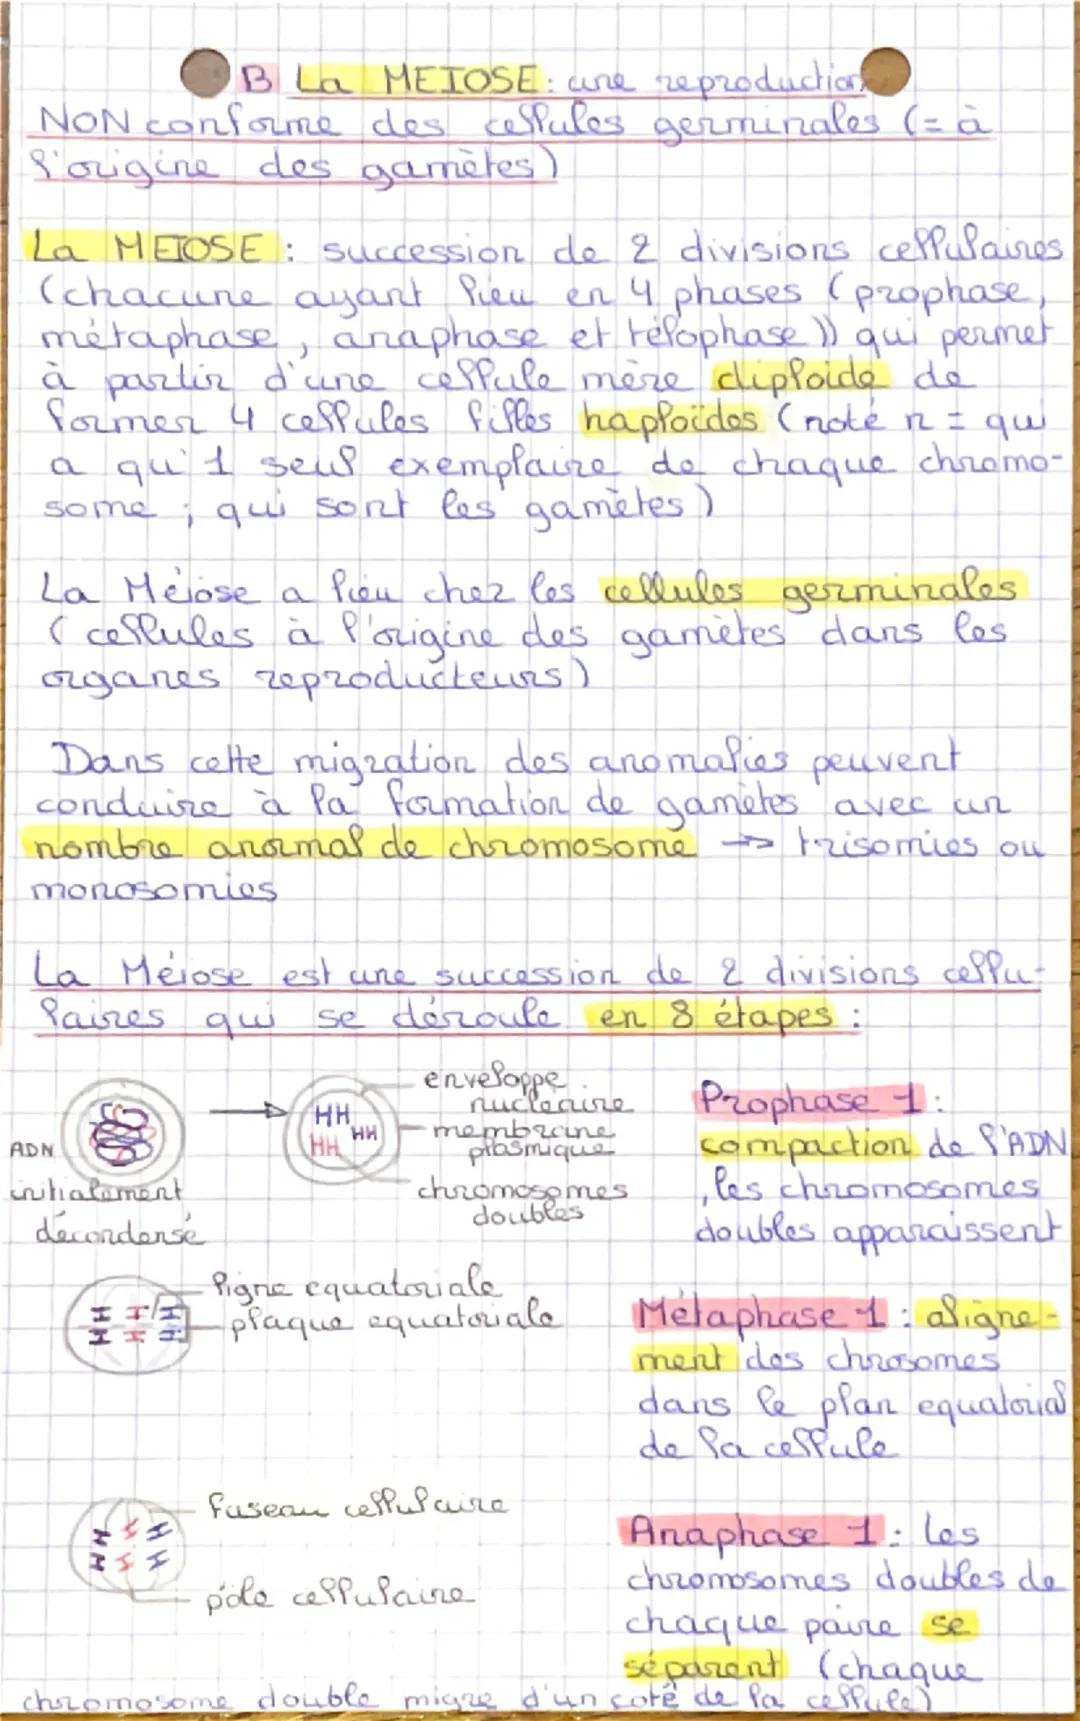 B La MEIOSE : une reproduction
NON conforme des cellules germinales (= à
l'origine des gamètes)
La MEIOSE : succession de 2 divisions cellulaires
(chacune ayant lieu en 4 phases (prophase,
métaphase, anaphase et télophase)) qui permet
à partir d'une cellule mère diploïde de
former 4 cellules filles haploïdes (noté n = qui
a qu'1 seul exemplaire de chaque chromo-
some ; qui sont les gamètes)
La Méiose a lieu chez les cellules germinales
(cellules à l'origine des gamètes dans les
organes reproducteurs)
Dans cette migration des anomalies peuvent
conduire à la formation de gamètes avec un
nombre anormal de chromosome → trisomies ou
monosomies
La Méiose est une succession de 2 divisions cellu-
laires qui se déroule en 8 étapes :
ADN
initialement
décondensé
enveloppe
nucléaire
membrane
plasmique
chromosomes
doubles
Prophase 1 :
compaction de l'ADN
, les chromosomes
doubles apparaissent
ligne equatoriale
plaque equatoriale
Métaphase 1 : aligne-
ment des chrosomes
dans le plan equatorial
de la cellule
fuseau cellulaire
pôle cellulaire
Anaphase 1 : les
chromosomes doubles de
chaque paire se
séparent (chaque
chromosome double migre d'un coté de la cellule)